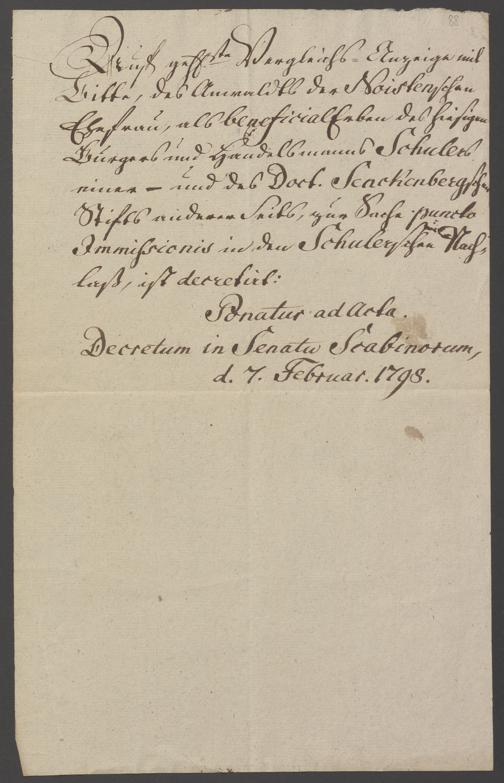 88
Auf geschste Vergleichs-Anzeige mit
Bitte, des Anwaldts der Noistenschen
Ehefrau, als beneficialErben des hiesigen
Burgers und Handelsmanns Schulers
einer - und des Doct. Senckenbergschen
Stifts anderer Seits, zur Sache puncto
Immissionis in den Schulerschen Nach-
laß, ist decretirt:
Ponatur ad Acta.
Decretum in Senatu Scabinorum,
d. 7. Februar. 1798.